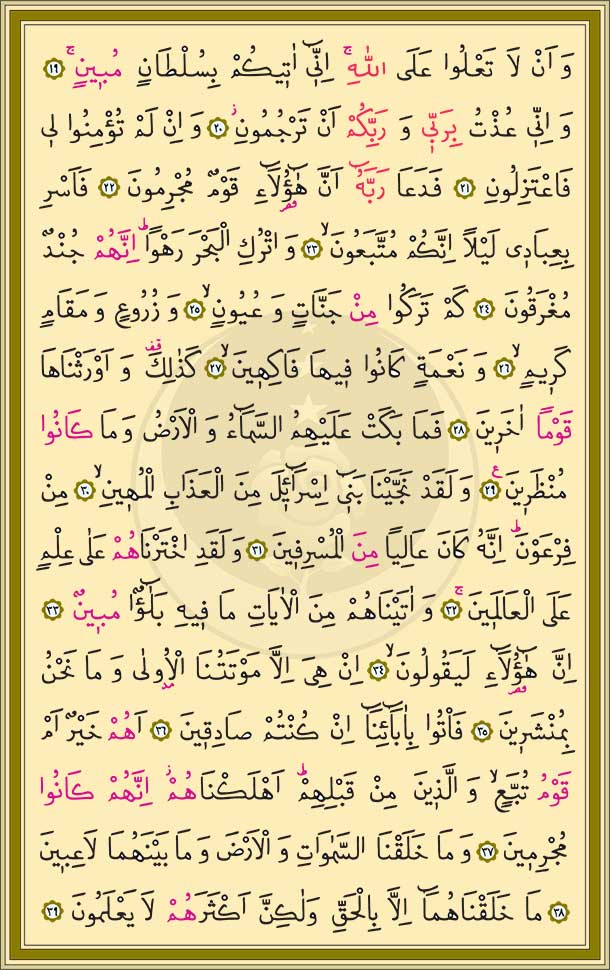 وَ اَنْ لَا تَعْلُوا عَلَى اللّٰهِۚ اِنّ۪ٓي اٰت۪يكُمْ بِسُلْطَانٍ مُب۪ينٍۚ ﴿١٩﴾
وَ اِنّ۪ي عُذْتُ بِرَبّ۪ي وَ رَبِّكُمْ اَنْ تَرْجُمُونِۘ ﴿٢٠﴾ وَ اِنْ لَمْ تُؤْمِنُوا ل۪ي
فَاعْتَزِلُونِ ﴿٢١﴾ فَدَعَا رَبَّهُٓ اَنَّ هٰٓؤُ۬لَٓاءِ قَوْمٌ مُجْرِمُونَ ﴿٢٢﴾ فَاَسْرِ
بِعِبَاد۪ي لَيْلًا اِنَّكُمْ مُتَّبَعُونَۙ ﴿٢٣﴾ وَ اتْرُكِ الْبَحْرَ رَهْوًاۜ اِنَّهُمْ جُنْدٌ
مُغْرَقُونَ ﴿٢٤﴾ كَمْ تَرَكُوا مِنْ جَنَّاتٍ وَ عُيُونٍۙ ﴿٢٥﴾ وَ زُرُوعٍ وَ مَقَامٍ
كَر۪يمٍۙ ﴿٢٦﴾ وَ نَعْمَةٍ كَانُوا ف۪يهَا فَاكِه۪ينَۙ ﴿٢٧﴾ كَذٰلِكَ۠ وَ اَوْرَثْنَاهَا
قَوْمًا اٰخَر۪ينَ ﴿٢٨﴾ فَمَا بَكَتْ عَلَيْهِمُ السَّمَٓاءُ وَ الْاَرْضُ وَ مَا كَانُوا
مُنْظَر۪ينَ۟ ﴿٢٩﴾ وَ لَقَدْ نَجَّيْنَا بَن۪ٓي اِسْرَٓائ۪لَ مِنَ الْعَذَابِ الْمُه۪ينِۙ ﴿٣٠﴾ مِنْ
فِرْعَوْنَۜ اِنَّهُ كَانَ عَالِيًا مِنَ الْمُسْرِف۪ينَ ﴿٣١﴾ وَ لَقَدِ اخْتَرْنَاهُمْ عَلٰى عِلْمٍ
عَلَى الْعَالَم۪ينَۚ ﴿٣٢﴾ وَ اٰتَيْنَاهُمْ مِنَ الْاٰيَاتِ مَا ف۪يهِ بَلٰٓؤٌ۬ا مُب۪ينٌ ﴿٣٣﴾
اِنَّ هٰٓؤُ۬لَٓاءِ لَيَقُولُونَۙ ﴿٣٤﴾ اِنْ هِيَ اِلَّا مَوْتَتُنَا الْاُو۫لٰى وَ مَا نَحْنُ
بِمُنْشَر۪ينَ ﴿٣٥﴾ فَأْتُوا بِاٰبَٓائِنَٓا اِنْ كُنْتُمْ صَادِق۪ينَ ﴿٣٦﴾ اَهُمْ خَيْرٌ اَمْ
قَوْمُ تُبَّعٍۙ وَ الَّذ۪ينَ مِنْ قَبْلِهِمْۜ اَهْلَكْنَاهُمْۘ اِنَّهُمْ كَانُوا
مُجْرِم۪ينَ ﴿٣٧﴾ وَ مَا خَلَقْنَا السَّمٰوَاتِ وَ الْاَرْضَ وَ مَا بَيْنَهُمَا لَاعِب۪ينَ
﴿٣٨﴾ مَا خَلَقْنَاهُمَٓا اِلَّا بِالْحَقِّ وَلٰكِنَّ اَكْثَرَهُمْ لَا يَعْلَمُونَ ﴿٣٩﴾